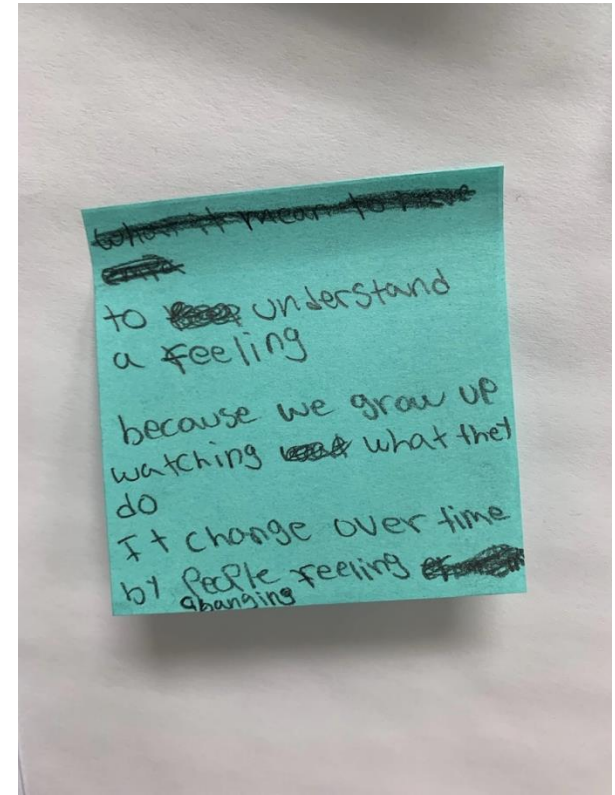 what it mean to have
to understand
a feeling
because we grow up
watching what they
do
It change over time
by People feeling
changing